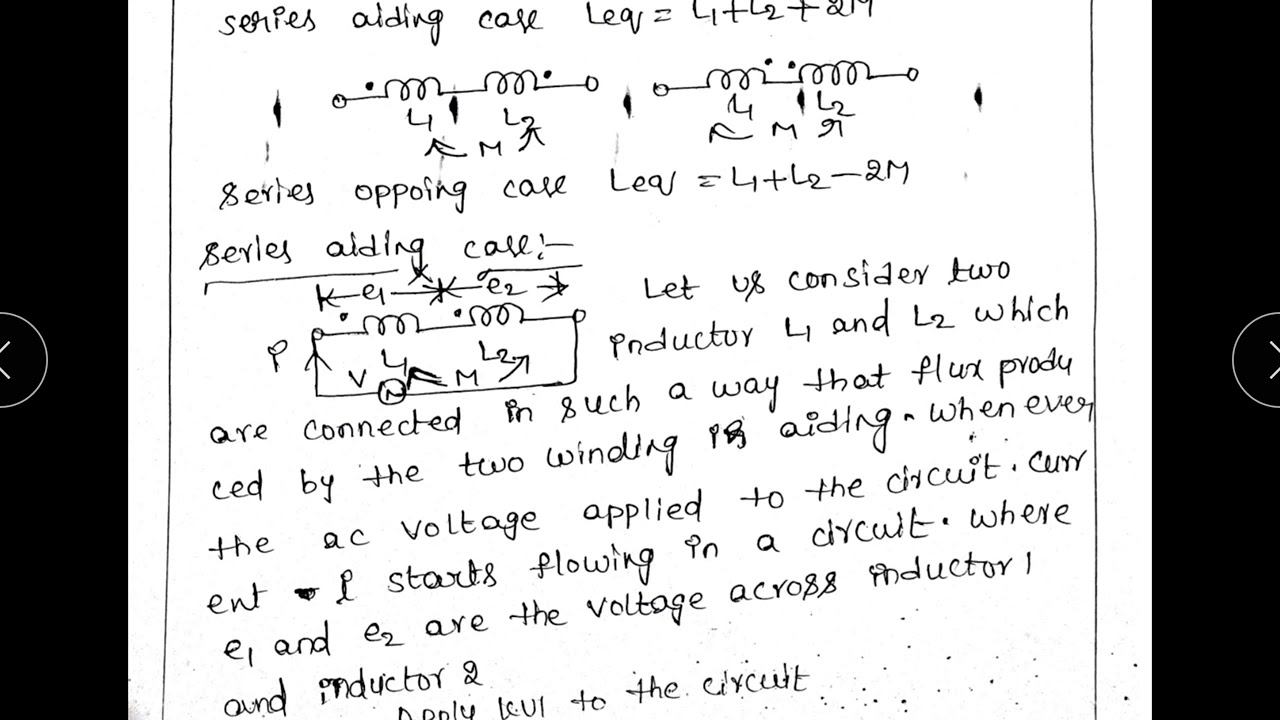 series aiding case Leq = L1+L2+2M
L1 L2
M
L1 L2
M
Series oppoing case Leq = L1+L2-2M
Series aiding case:-
e1 e2
Let us consider two
inductor L1 and L2 which
L1 L2
V M
are connected in such a way that flux produ
ced by the two winding is aiding. when ever
the ac voltage applied to the circuit. curr
ent i starts flowing in a circuit. where
e1 and e2 are the voltage across inductor 1
and inductor 2
Apply KVL to the circuit